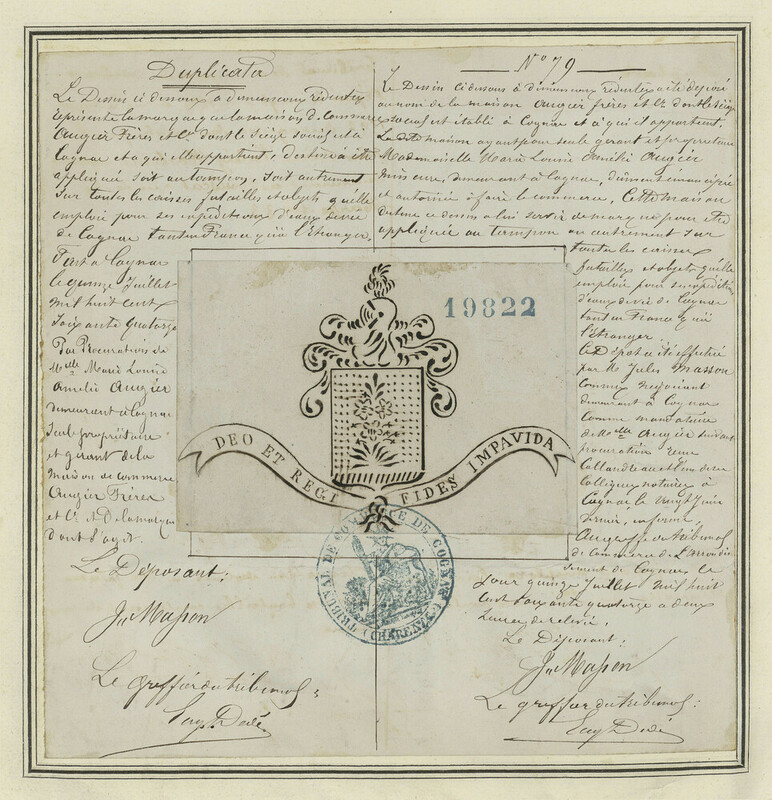 Duplicata
Le Dessin ci dessous à dimensions réduites
représente la marque que la maison de commerce
Augier Frères et Cie dont le siège social est à
Cognac et à qui elle appartient, destine à être
appliquée soit au tampon, soit autrement
sur toutes les caisses futailles et objets qu'elle
emploie pour ses expéditions d'eaux de vie
de Cognac tant en France qu'à l'Etranger.
Fait à Cognac
le quinze Juillet
mil huit cent
soixante quatorze
Par Procuration de
Melle Marie Louise
Amélie Augier
demeurant à Cognac
seule propriétaire
et gérant de la
maison de commerce
Augier Frères
et Cie et De la marque
dont s'agit.
Le Déposant:
Ju Masson
Le greffier du tribunal:
No 79
Le Dessin ci dessous à dimensions réduites a été déposé
au nom de la maison Augier frères et Cie dont le siège
social est établi à Cognac et à qui il appartient.
La dite maison ayant pour seule gérant et propriétaire
Mademoiselle Marie Louise Amélie Augier
mineure, demeurant à Cognac, dûment émancipée
et autorisée à faire le commerce, Cette maison
destine ce dessin à lui servir de marque pour être
appliquée au tampon ou autrement sur
toutes les caisses
futailles et objets qu'elle
emploie pour ses expéditions
d'eaux de vie de Cognac
tant en France qu'à
l'étranger.
Ce Dépôt a été effectué
par M. Jules Masson
commis négociant
demeurant à Cognac
comme mandataire
de Melle Augier suivant
procuration reçue
Callandreau et l'un de ses
collègues notaires à
Cognac le vingt Juin
dernier, informe.
Au greffe du tribunal
de commerce de l'arrondis-
sement de Cognac, ce
jour quinze Juillet mil huit
cent soixante quatorze à deux
heures de relevée.
Le Déposant:
Ju Masson
Le greffier du tribunal:
19822
DEO ET REGI FIDES IMPAVIDA
TRIBUNAL DE COMMERCE DE COGNAC (CHARENTE)